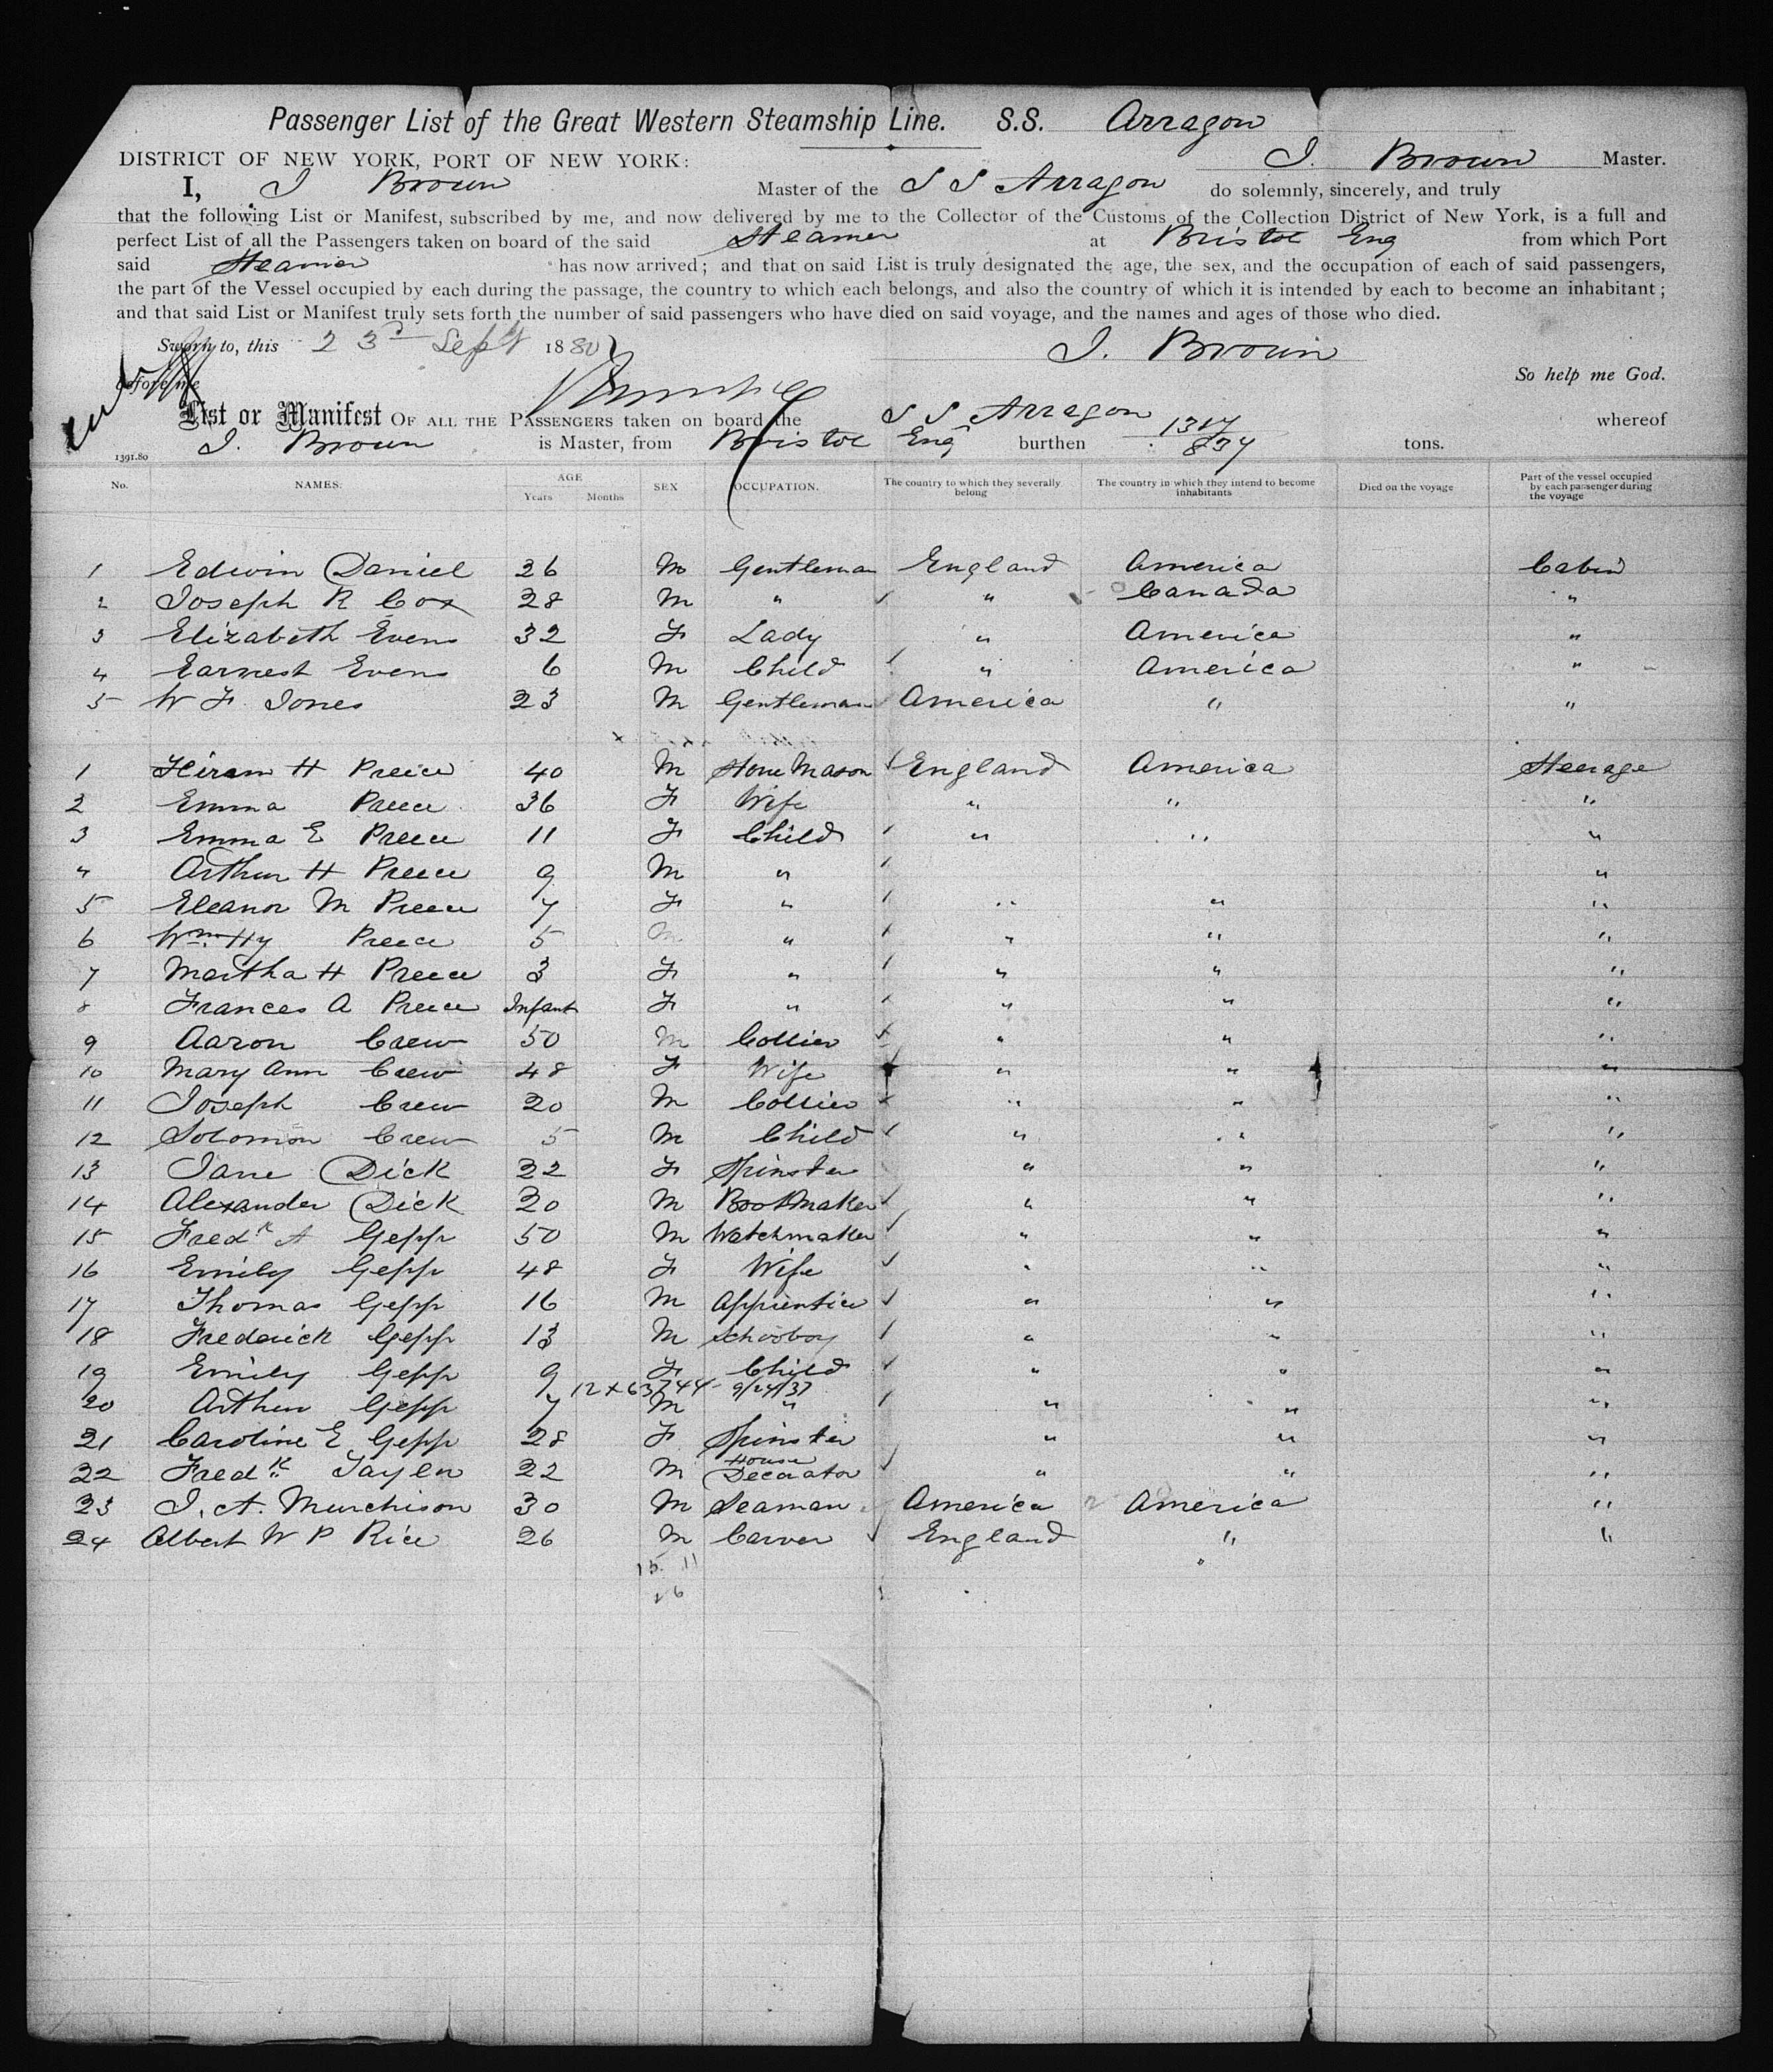 Passenger List of the Great Western Steamship Line. S.S. Arragon
DISTRICT OF NEW YORK, PORT OF NEW YORK: J. Brown Master.
I, J Brown Master of the S S Arragon do solemnly, sincerely, and truly
that the following List or Manifest, subscribed by me, and now delivered by me to the Collector of the Customs of the Collection District of New York, is a full and
perfect List of all the Passengers taken on board of the said Steamer at Bristol Eng from which Port
said Steamer has now arrived; and that on said List is truly designated the age, the sex, and the occupation of each of said passengers,
the part of the Vessel occupied by each during the passage, the country to which each belongs, and also the country of which it is intended by each to become an inhabitant;
and that said List or Manifest truly sets forth the number of said passengers who have died on said voyage, and the names and ages of those who died.
Sworn to, this 23d Sept 1880 J. Brown
before me So help me God.
List or Manifest OF ALL THE PASSENGERS taken on board the S S Arragon whereof
J. Brown is Master, from Bristol Eng burthen tons.
1391.80
No. NAMES. AGE Years Months SEX OCCUPATION. The country to which they severally belong The country in which they intend to become inhabitants Died on the voyage Part of the vessel occupied by each passenger during the voyage
1 Edwin Daniel 26 M Gentleman England America Cabin
2 Joseph R Cox 28 M " " Canada "
3 Elizabeth Evens 32 F Lady " America "
4 Earnest Evens 6 M Child " America "
5 W F Jones 23 M Gentleman America " "
1 Hiram H Preece 40 M Stone Mason England America Steerage
2 Emma Preece 36 F Wife " " "
3 Emma E Preece 11 F Child " " "
4 Arthur H Preece 9 M " "
5 Eleanor M Preece 7 F " " " "
6 Wm Hy Preece 5 M " " " "
7 Martha H Preece 3 F " " " "
8 Frances A Preece Infant F " " " "
9 Aaron Crew 50 M Collier " " "
10 Mary Ann Crew 48 F Wife " " "
11 Joseph Crew 20 M Collier " " "
12 Solomon Crew 5 M Child " " "
13 Jane Dick 22 F Spinster " " "
14 Alexander Dick 20 M Bootmaker " " "
15 Fredk A Gepp 50 M Watchmaker " " "
16 Emily Gepp 48 F Wife " " "
17 Thomas Gepp 16 M Apprentice " " "
18 Frederick Gepp 13 M Schoolboy " " "
19 Emily Gepp 9 F Child " " "
12 x 63744 9/24/37
20 Arthur Gepp 7 M " " " "
21 Caroline E Gepp 28 F Spinster " " "
22 Fredk Taylor 22 M House Decorator " " "
23 J. A. Murchison 30 M Seaman America America "
24 Albert W P Rice 26 M Carver England " "
15 11
26